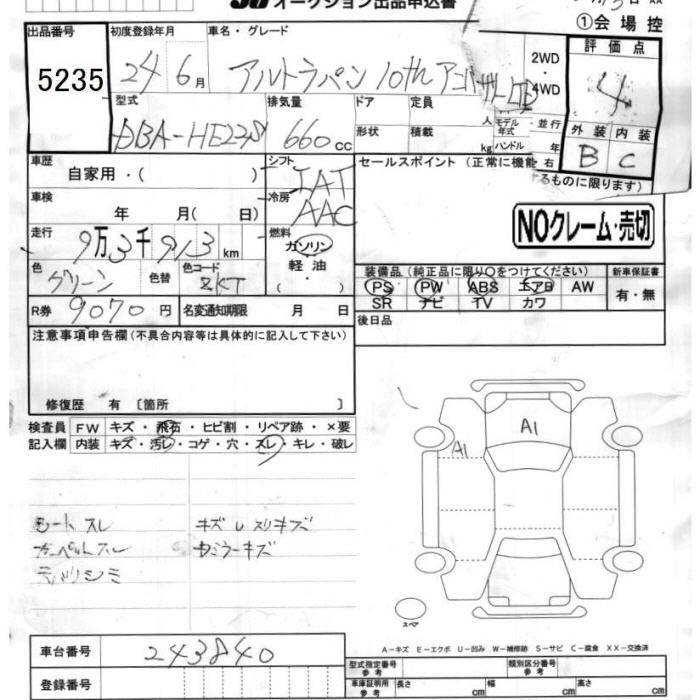 オークション出品申込書
①会場控
出品番号 初度登録年月 車名・グレード 評価点
5235 24 6月 アルトラパン 10th アニバーサリーLTD 2WD 4WD 4
型式 排気量 ドア 定員 人 モデル年式 並行 外装 内装
DBA-HE22S 660cc 形状 積載 kg ハンドル 年 右 B C
車歴 シフト セールスポイント (正常に機能
自家用・( ) IAT るものに限ります)
車検 年 月( 日) 冷房 AAC
NOクレーム・売切
走行 9万3千913km 燃料 ガソリン
軽油
( )
色 グリーン 色替 色コード ZKT
装備品(純正品に限り○をつけてください) 新車保証書
PS PW ABS エアB AW 有・無
SR ナビ TV カワ
R券 9070円 名変通知期限 月 日 後日品
注意事項申告欄(不具合内容等は具体的に記入して下さい)
修復歴 有 〔箇所 〕
検査員 FW キズ・飛石・ヒビ割・リペア跡・×要
記入欄 内装 キズ・汚レ・コゲ・穴・スレ・キレ・破レ
A1
A1
シートスレ キズ
カーペットスレ
スペア
A-キズ E-エクボ U-凹み W-補修跡 S-サビ C-腐食 XX-交換済
車台番号 243840
登録番号
型式指定番号 参考 類別区分番号 参考
車庫証明用 参考 長さ cm 幅 cm 高さ cm